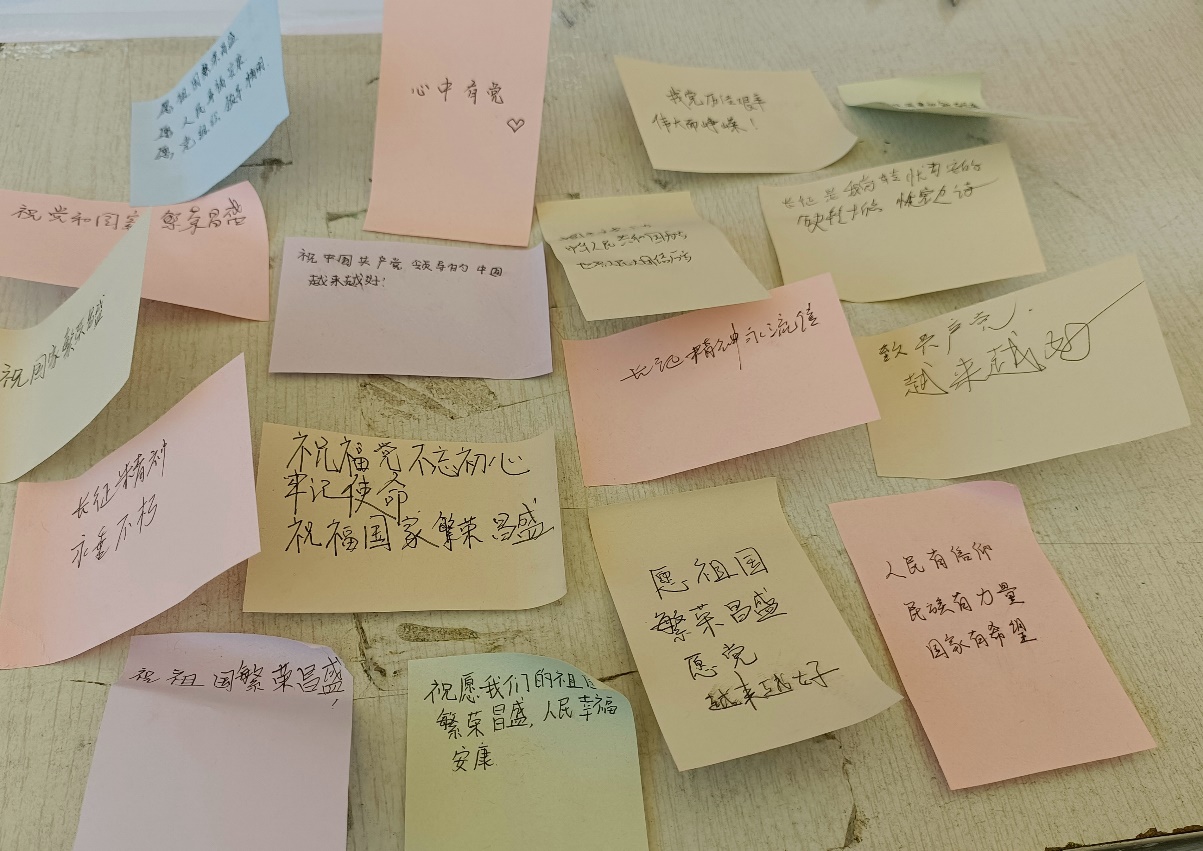 愿祖国繁荣昌盛
愿人民幸福安康
愿党组织
心中有党
我党历经艰辛
伟大而峥嵘！
祝党和国家繁荣昌盛
祝中国共产党领导的中国
越来越好！
中华人民共和国万岁
长征是
祝国家繁荣昌盛
长征精神永流传
致共产党.
越来越好
长征精神
永垂不朽
祝福党不忘初心
牢记使命
祝福国家繁荣昌盛
愿祖国
繁荣昌盛
愿党
越来越好
人民有信仰
民族有力量
国家有希望
祝祖国繁荣昌盛,
祝愿我们的祖国
繁荣昌盛,人民幸福
安康